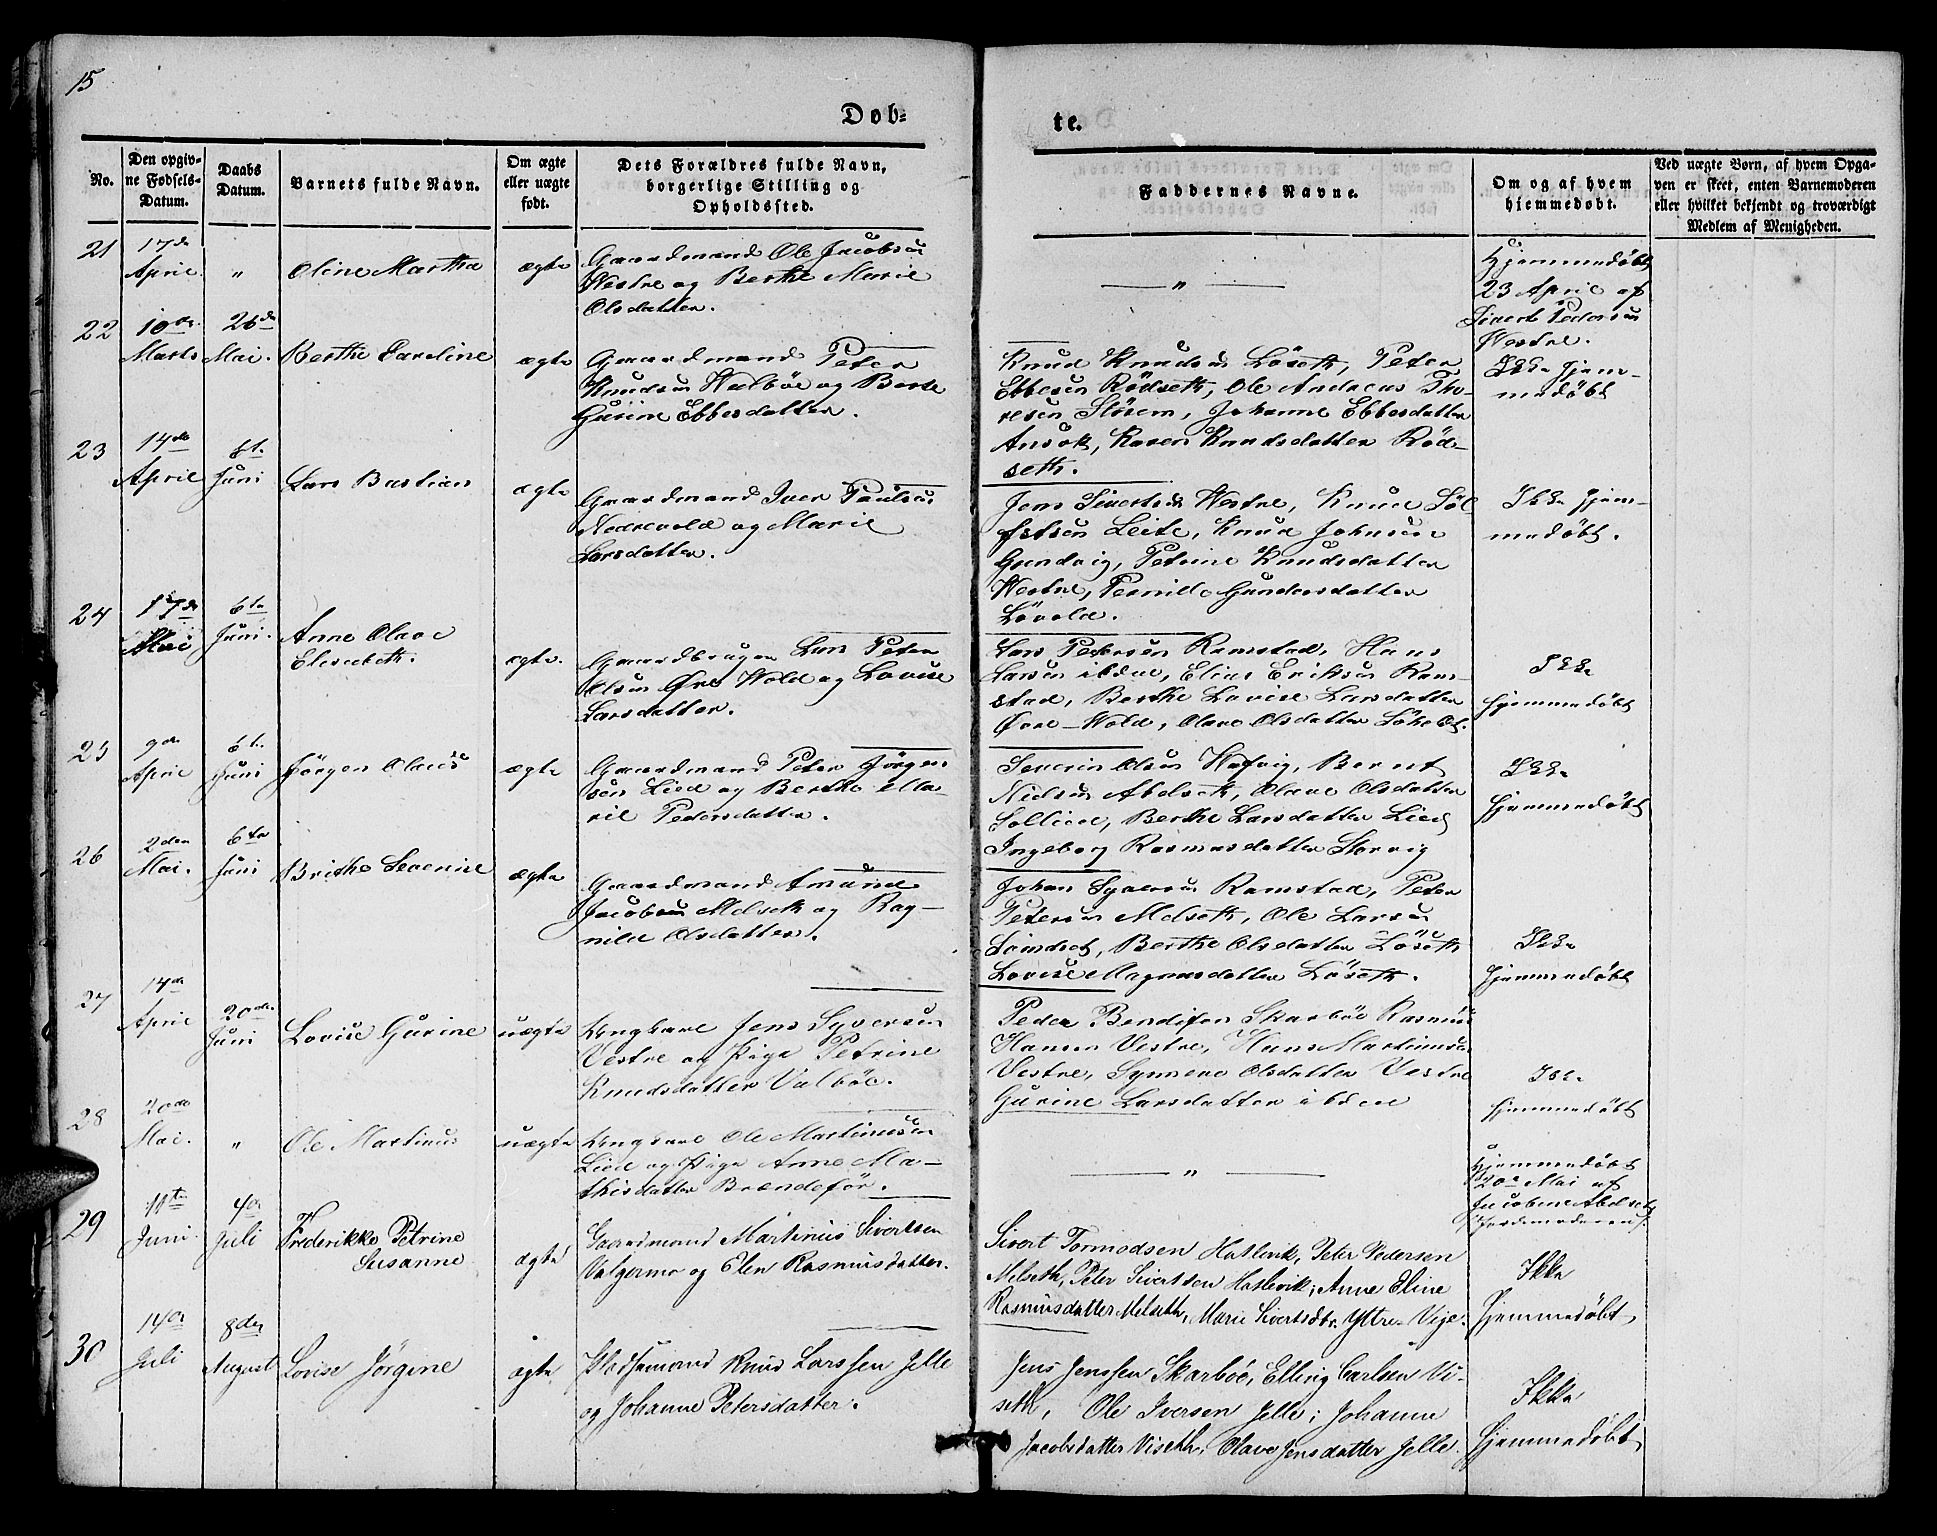 15
Døb=
te.
No.
Den opgiv-
ne Fødsels-
Datum.
Daabs
Datum.
Barnets fulde Navn.
Om ægte
eller uægte
født.
Dets Forældres fulde Navn,
borgerlige Stilling og
Opholdssted.
Faddernes Navne.
Om og af hvem
hjemmedøbt.
Ved uægte Børn, af hvem Opga-
ven er skeet, enten Barnemoderen
eller hvilket bekjendt og troværdigt
Medlem af Menigheden.
21
17de
April
"
Oline Martha
ægte
Gaardmand Ole Jacobsen
Vestre og Berthe Marie
Olsdatter.
"
Hjemmedøbt
23 April af
Sivert Pedersen
Vestre.
22
10de
Marts
26de
Mai.
Berthe Caroline
ægte
Gaardmand Peter
Knudsen Walbøe og Berte
Gurine Ebbesdatter.
Knud Knudsen Løseth, Peter
Ebbesen Rødseth, Ole Andreas Tho-
resen Störem, Johanne Ebbesdatter
Ansok, Karen Knudsdatter Rød-
seth.
Ikke hjem-
medøbt
23
14de
April
6te
Juni
Lars Bastian
ægte
Gaardmand Iver Paulsen
Nedrevold og Marie
Larsdatter.
Jens Sivertsen Westre, Knud Søl-
festsen Leite, Knud Johnsen
Grendvig, Petrine Knudsdatter
Westre, Pernille Gundersdatter
Løvold.
Ikke hjem-
medøbt.
24
17de
Mai
6te
Juni.
Anne Olave
Elisabeth.
ægte.
Gaardbruger Lars Peter
Olsen Øvre Wold og Lovise
Larsdatter.
Lars Pedersen Ramstad, Hans
Larsen ibdm, Elias Eriksen Ram-
stad, Berthe Lovise Larsdatter
Øvre-Wold, Olave Olsdatter
Ikke
hjemmedøbt
25
9de
April
6te
Juni
Jørgen Olaus
ægte
Gaardmand Peter Jørgen-
sen Lied og Berthe Ma-
rie Pedersdatter.
Severin Olsen Hafvig, Bernt
Nielsen Abelseth, Olave Olsdatter
Sollied, Berthe Larsdatter Lied
Ingeborg Rasmusdatter Storvig
Ikke
hjemmedøbt
26
2den
Mai.
6te
Juni
Brithe Severine
ægte
Gaardmand Amund
Jacobsen Melseth og Rag-
nild Olsdatter.
Johan Syversen Ramstad, Peter
Petersen Melseth, Ole Larsen
Lindset, Berthe Olsdatter Løseth
Lovise Magnusdatter Løseth.
Ikke
hjemmedøbt
27
14de
April
20de
Juni
Lovise Gurine
uægte
Ungkarl Jens Syversen
Vestre og Pige Petrine
Knudsdatter Valbøe.
Peder Bendixen Skarbøe Rasmus
Hansen Vestre, Hans Martinusen
Vestre, Symene Olsdatter Vestre
Gurine Larsdatter ibdm
Ikke
hjemmedøbt
28
20de
Mai.
"
Ole Martinus
uægte
Ungkarl Ole Martinusen
Lied og Pige Anne Ma-
thisdatter Brændefør.
"
Hjemmedøbt
20de Mai af
Jacobine Abelset
(Jordemoderen).
29
11te
Juni
4de
Juli
Frederikke Petrine
Susanne
ægte
Gaardmand Martinus Sivertsen
Valgermo og Elen Rasmusdatter.
Sivert Tormodsen Hatlevik, Peter Pedersen
Melseth, Peter Sivertsen Hatlevik; Anne Eline
Rasmusdatter Melseth, Marie Sivertsdtr. Yttre-Vije.
Ikke
Hjemmedøbt,
30
14de
Juli
8de
August
Lovise Jörgine
ægte
Pladsemand Knud Larssen Jelle
og Johanne Petersdatter.
Jens Jenssen Skarbøe, Elling Carlsen Vi-
seth, Ole Iversen Jelle; Johanne
Jacobsdatter Viseth; Olave Jensdatter Jelle.
Ikke
Hjemmedøbt